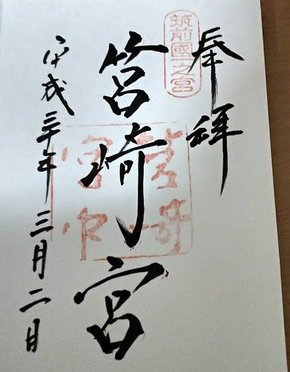 奉拝
筑前國一之宮
筥崎宮
平成三十年三月二日